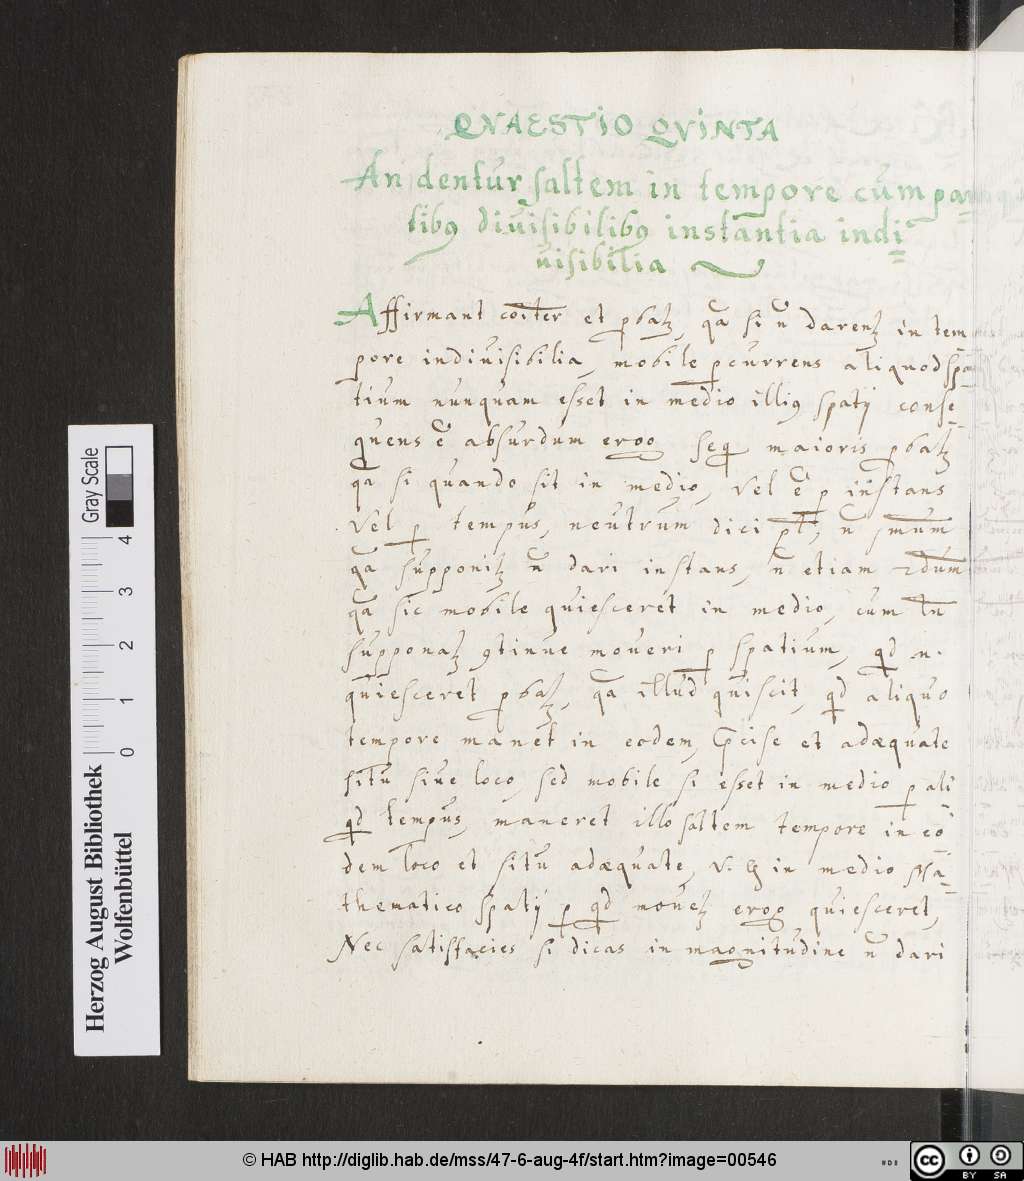 QVAESTIO QVINTA
An dentur saltem in tempore cum par=
tibꝰ diuisibilibꝰ instantia indi=
uisibilia
Affirmant coīter et ꝓbatꝛ, qa si n̄ darentꝛ in tem=
pore indiuisibilia, mobile ꝑcurrens aliquod spa=
tium nunquam esset in medio illiꝰ spatij conse=
quens ē absurdum ergo seq maioris ꝓbatꝛ
qa si quando sit in medio, vel ē ꝑ instans
vel ꝑ tempus, neutrum dici pt, n̄ pmum
qa supponitꝛ n̄ dari instans, n̄ etiam 2dum
qa sic mobile quiesceret in medio, cum tn̄
supponatꝛ ꝯtinue moueri ꝑ spatium, qd n.
quiesceret ꝓbatꝛ, qa illud quiscit, qd aliquo
tempore manet in eodem, p̄cise et adæquate
situ siue loco, sed mobile si esset in medio ꝑ ali=
qd tempus, maneret illo saltem tempore in eo=
dem loco et situ adæquate, v. g in medio Ma=
thematico spatij ꝑ qd mouetꝛ ergo quiesceret,
Nec satisfacies si dicas in magnitudine n̄ dari
Gray Scale
0 1 2 3 4
Herzog August Bibliothek
Wolfenbüttel
© HAB http://diglib.hab.de/mss/47-6-aug-4f/start.htm?image=00546
cc BY SA